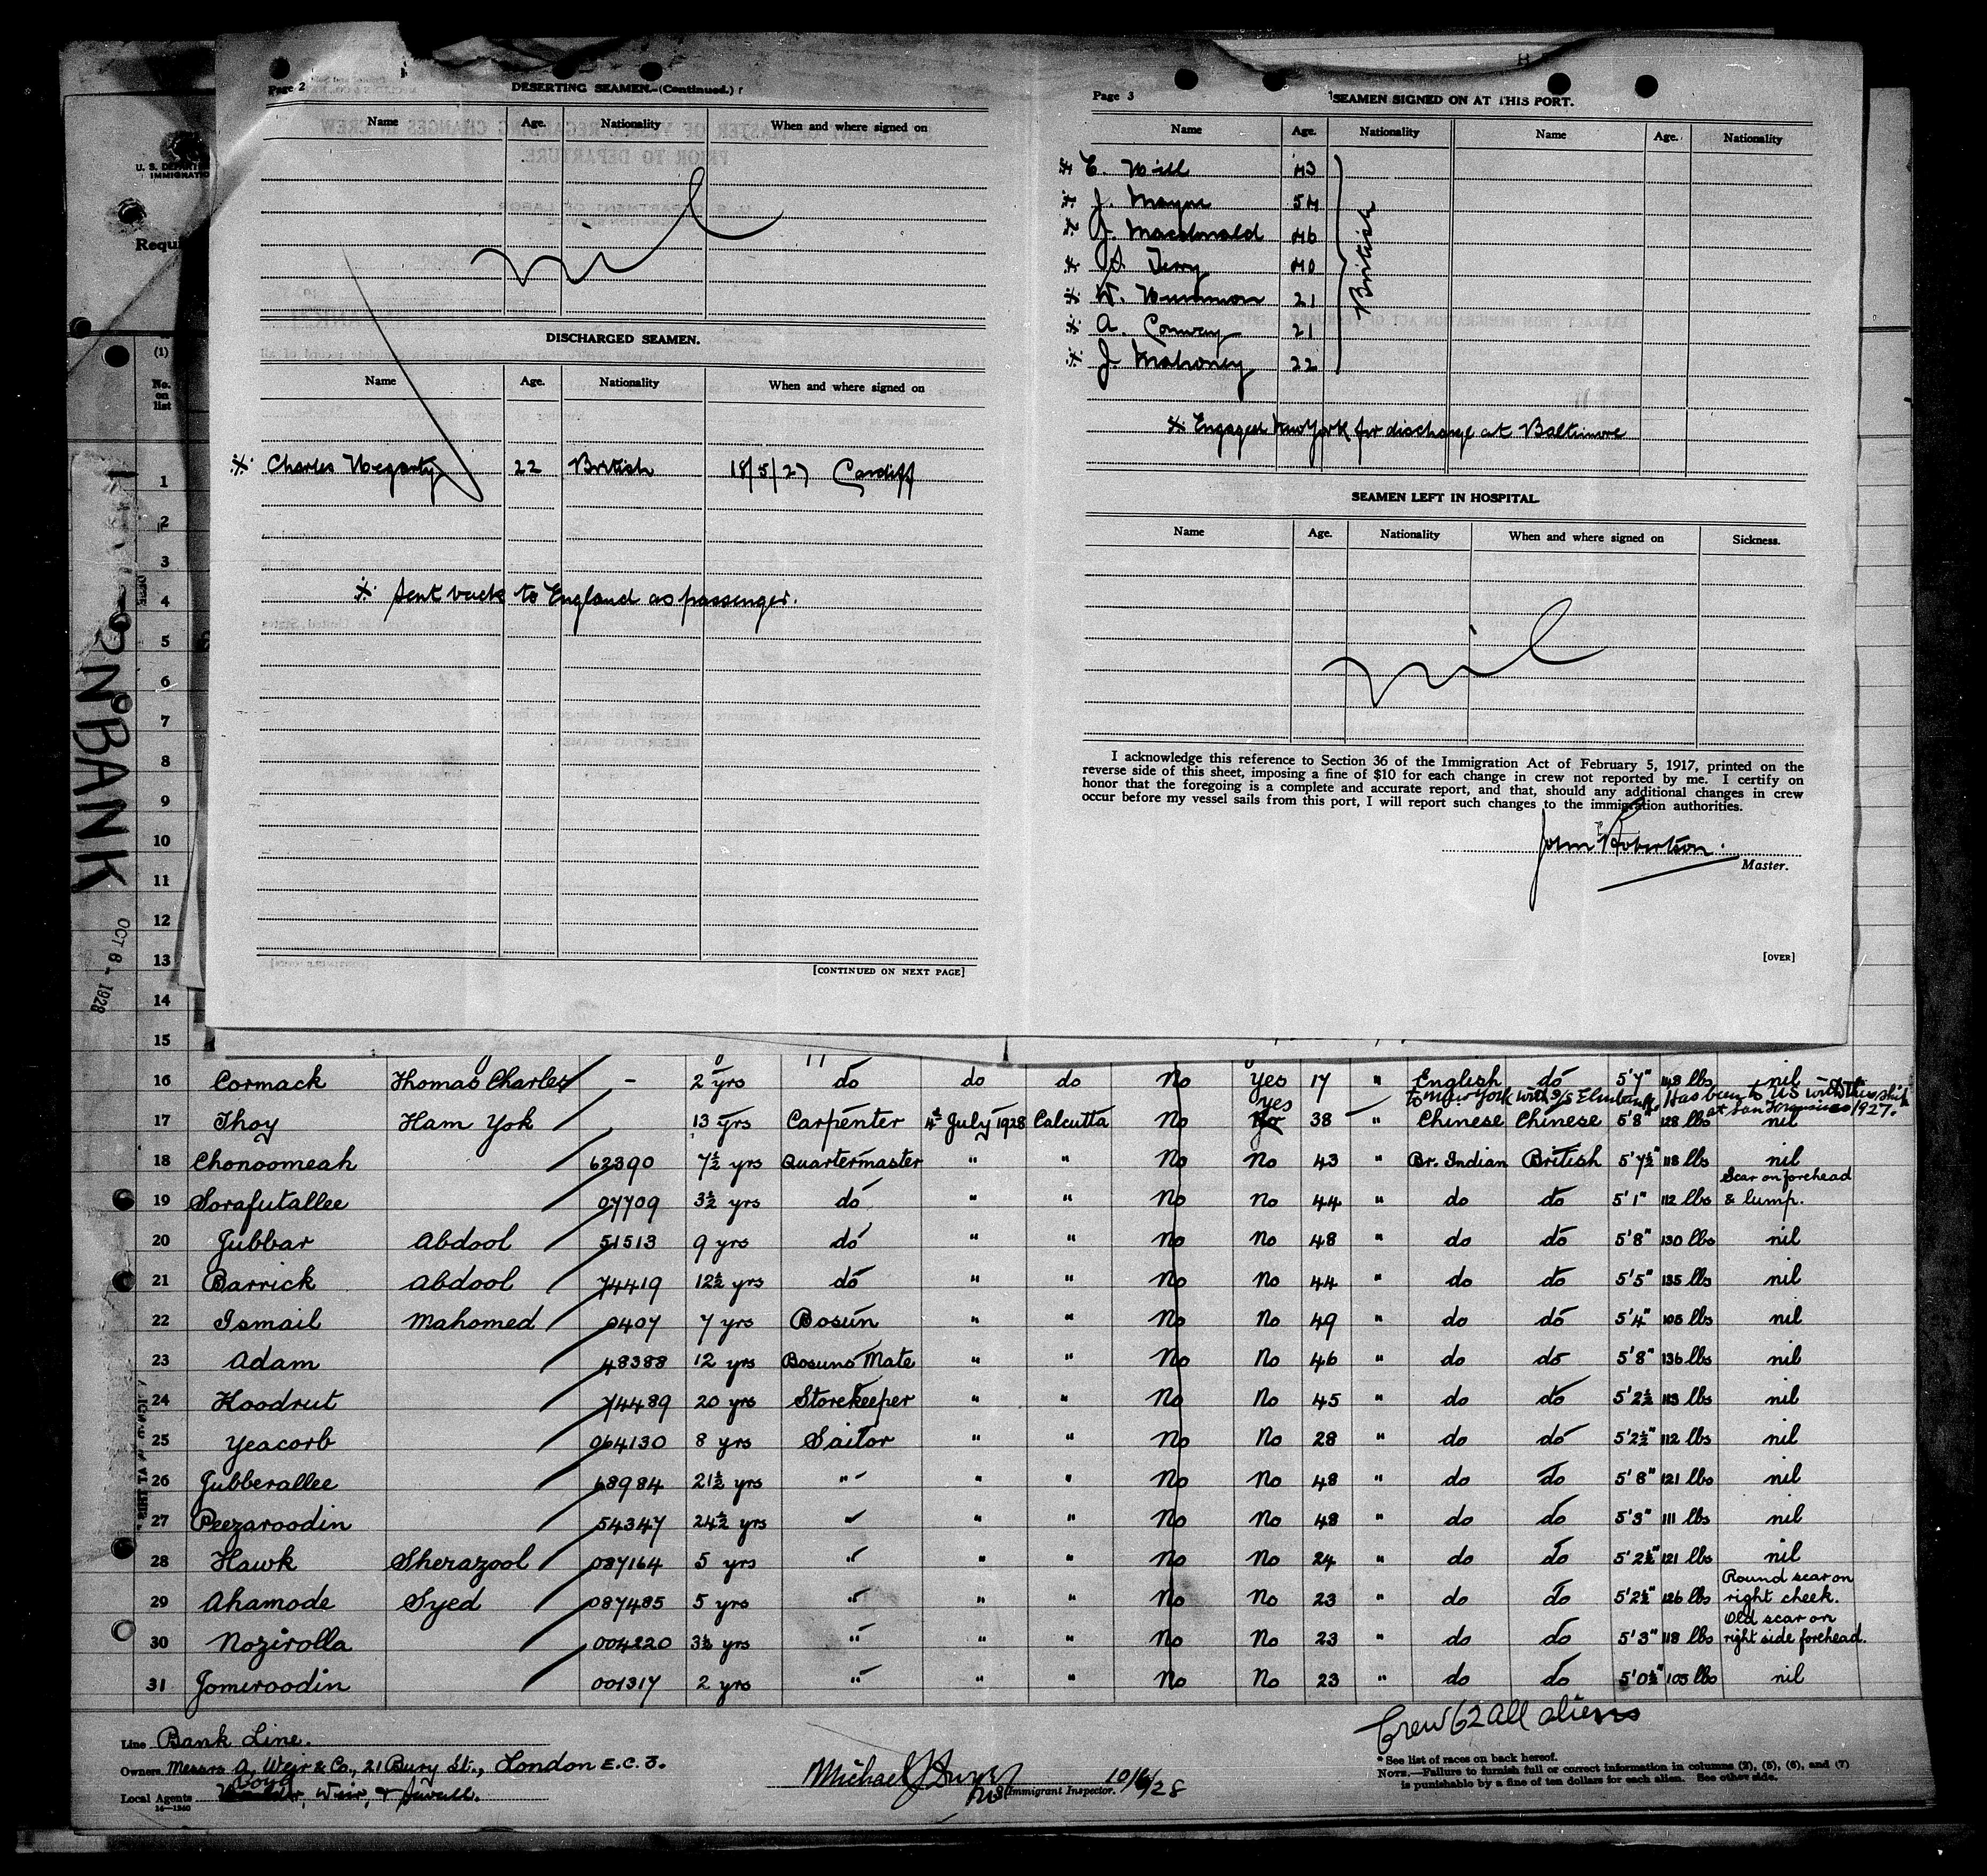 Page 2
DESERTING SEAMEN.—(Continued.)
Name Age. Nationality When and where signed on
nil
DISCHARGED SEAMEN.
Name Age. Nationality When and where signed on
※ Charles Hegarty 22 British 18/5/27 Cardiff
※ Sent back to England as passenger.
[CONTINUED ON NEXT PAGE]
Page 3
SEAMEN SIGNED ON AT THIS PORT.
Name Age. Nationality Name Age. Nationality
※ C. Will 43
※ J. 54
※ J. Macdonald 46
※ Terry 40
※ W. 21
※ A. Conway 21
※ J. Mahoney 22
British
※ Engaged New York for discharge at Baltimore
SEAMEN LEFT IN HOSPITAL
Name Age. Nationality When and where signed on Sickness.
nil
I acknowledge this reference to Section 36 of the Immigration Act of February 5, 1917, printed on the
reverse side of this sheet, imposing a fine of $10 for each change in crew not reported by me. I certify on
honor that the foregoing is a complete and accurate report, and that, should any additional changes in crew
occur before my vessel sails from this port, I will report such changes to the immigration authorities.
John Robertson.
Master.
[OVER]
U. S. DEPART
IMMIGRATIO
Requi
(1)
No.
on
list
BANK
OCT 6 - 1928
1
2
3
4
5
6
7
8
9
10
11
12
13
14
15
16 Cormack Thomas Charles - 2 yrs do do do No Yes 17 " English do 5'7" 148 lbs nil
to New York with s/s Elmbank. Has been to US with this ship
yes at San Francisco 1927.
17 Thoy Ham Yok 13 yrs Carpenter 4th July 1928 Calcutta No No 38 " Chinese Chinese 5'8" 128 lbs nil
18 Chonoomeah 62390 7½ yrs Quartermaster " " No No 43 " Br. Indian British 5'7½" 118 lbs nil
19 Sorafutallee 07709 3½ yrs do " " No No 44 " do do 5'1" 112 lbs Scar on forehead
& lump.
20 Jubbar Abdool 51513 9 yrs do " " No No 48 " do do 5'8" 130 lbs nil
21 Barrick Abdool 74419 12½ yrs do " " No No 44 " do do 5'5" 135 lbs nil
22 Ismail Mahomed 0407 7 yrs Bosun " " No No 49 " do do 5'4" 105 lbs nil
23 Adam 48388 12 yrs Bosuns Mate " " No No 46 " do do 5'8" 136 lbs nil
24 Hoodrut 74489 20 yrs Storekeeper " " No No 45 " do do 5'2½ 113 lbs nil
25 Yeacorb 064130 8 yrs Sailor " " No No 28 " do do 5'2½" 112 lbs nil
26 Jubberallee 68984 21½ yrs " " " No No 48 " do do 5'8" 121 lbs nil
27 Peezaroodin 54347 24½ yrs " " " No No 48 " do do 5'3" 111 lbs nil
28 Hawk Sherazool 087164 5 yrs " " " No No 24 " do do 5'2½" 121 lbs nil
29 Ahamode Syed 087485 5 yrs " " " No No 23 " do do 5'2½" 126 lbs Round scar on
right cheek.
30 Nozirolla 004220 3½ yrs " " " No No 23 " do do 5'3" 118 lbs Old scar on
right side forehead.
31 Jomeroodin 001317 2 yrs " " " No No 23 " do do 5'0½" 105 lbs nil
Crew 62 all aliens
Line Bank Line.
Owners Messrs A. Weir & Co., 21 Bury St., London E.C.3.
Local Agents Boyd, Weir, & Sewell.
14—1240
Michael J. 10/6/28
Immigrant Inspector.
* See list of races on back hereof.
NOTE.—Failure to furnish full or correct information in columns (2), (5), (6), and (7)
is punishable by a fine of ten dollars for each alien. See other side.